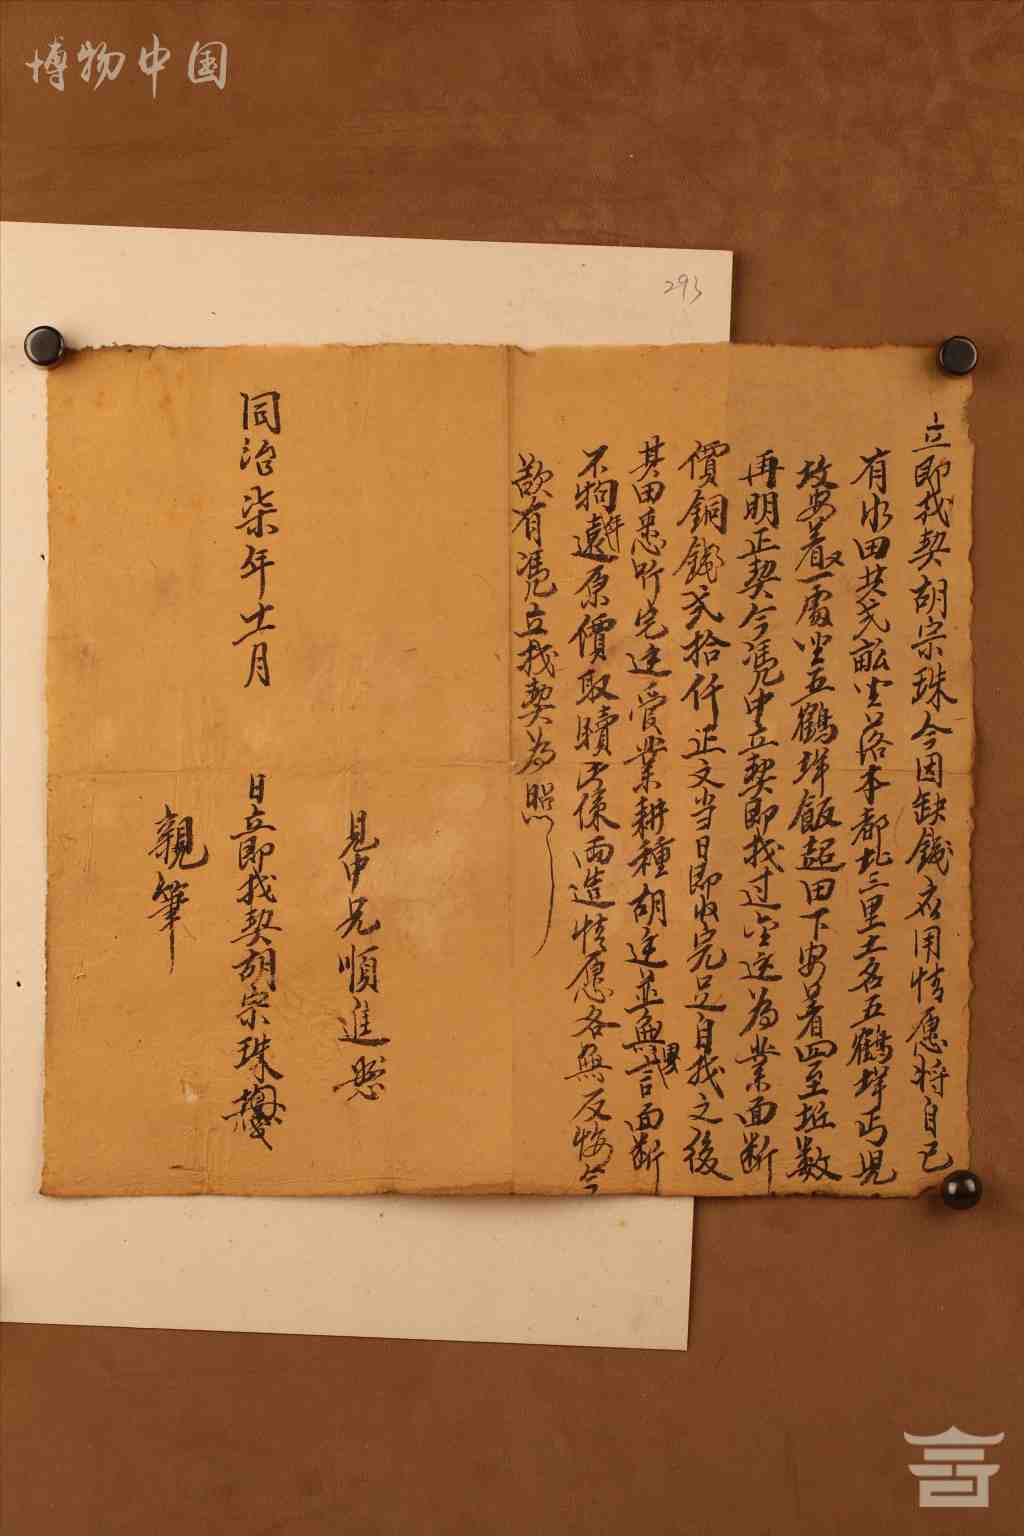 博物中国
293
立即找契胡宗珠今因缺錢應用情愿將自己
有水田共弍畝坐落本都北三里土名五鶴垟丙兒
坟安着又一處坐五鶴垟飯起田下安着四至坵數
再明正契今憑中立契即找过完送為業面断
價銅錢弍拾仟正文当日即收完足自找之後
其田悉听完边受業耕種胡边並無異言面断
不拘年遠原價取贖此係两造情愿各無反悔今
欲有憑立找契為照
見中兄順進
同治柒年十一月 日立即找契胡宗珠
親筆